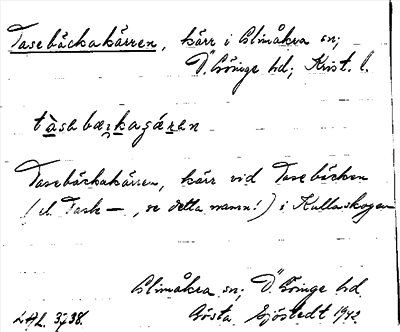 Tasebäckakärren, kärr i Glimåkra sn;
Ö. Göinge hd; Krist. l.
tàsebæʒkagáren
Tasebäckakärren, kärr vid Tasebäcken
(el. Task—, se detta namn!) i Kullaskogen
Glimåkra sn; Ö. Göinge hd.
LAL. 3738. Gösta Sjöstedt 1942